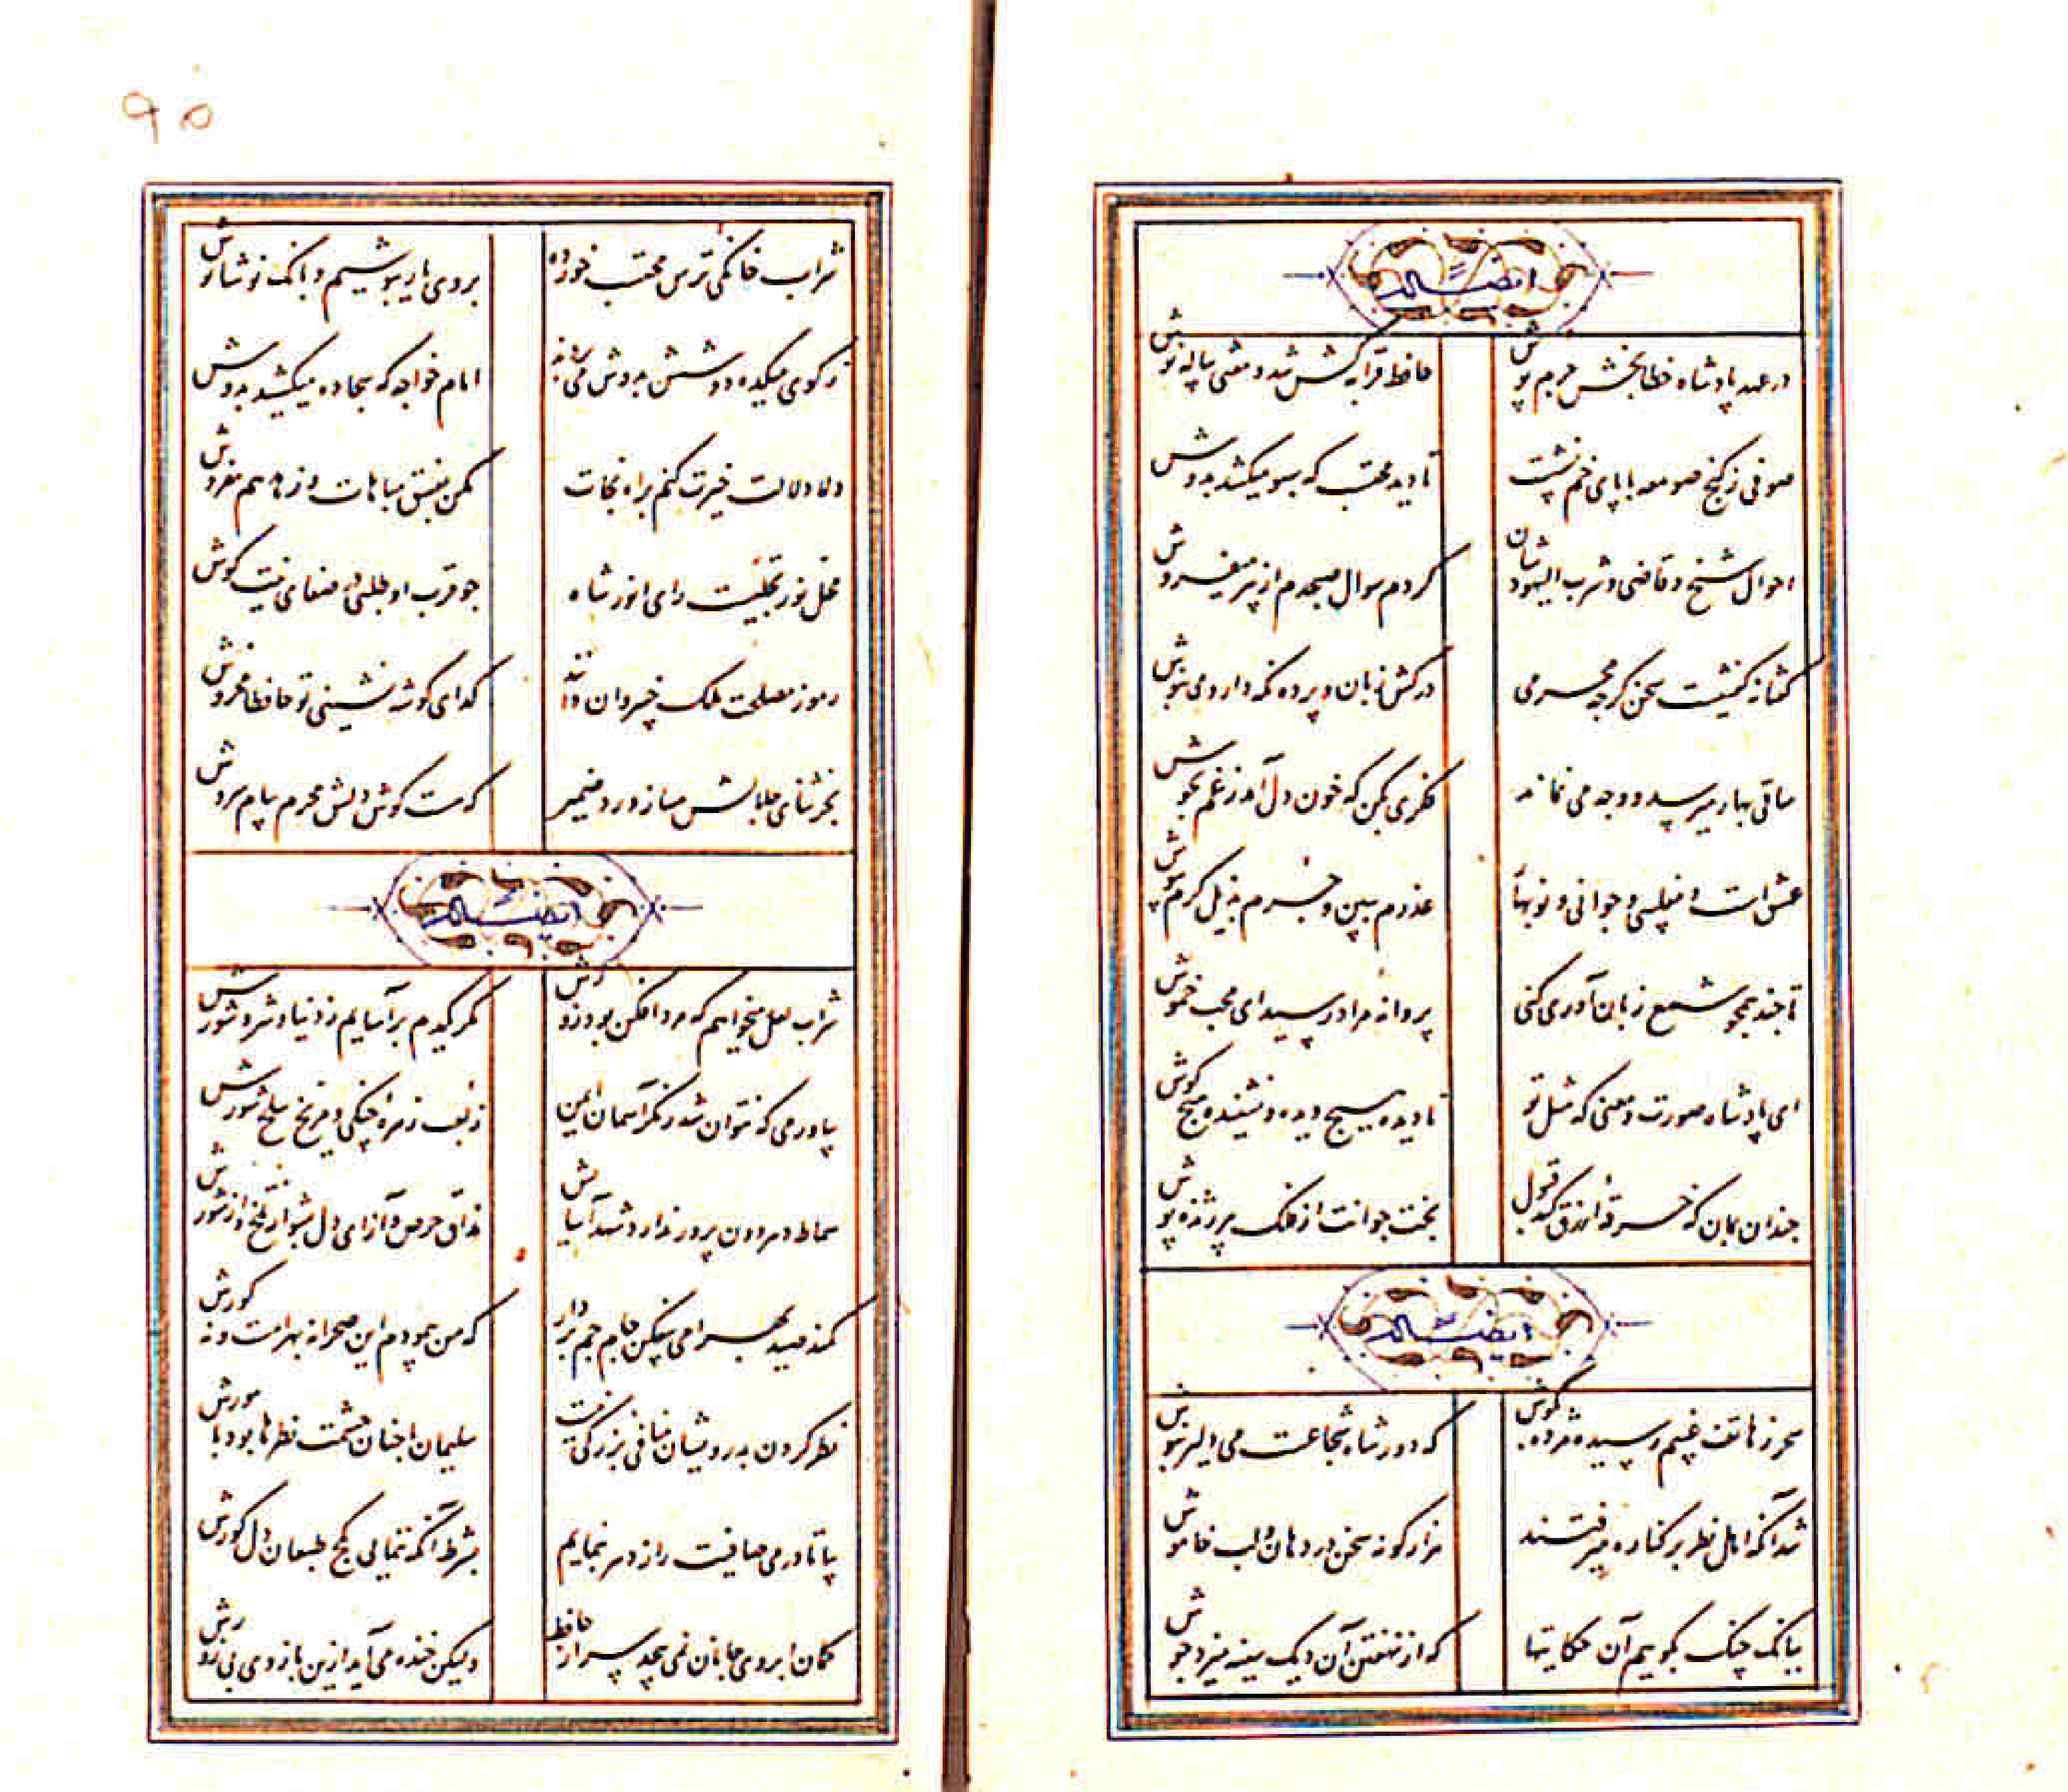 ایضاً له
در عهد پادشاه خطابخش جرم پوش حافظ قرابه کش شد و مفتی پیاله نوش
صوفی ز کنج صومعه با پای خم نشست تا دید محتسب که سبو میکشد بدوش
احوال شیخ و قاضی و شرب الیهودشان کردم سوال صبحدم از پیر میفروش
گفتا نه گفتنیست سخن گرچه محرمی درکش زبان و پرده نگه دار و می بنوش
ساقی بهار میرسد و وجه می نماند فکری بکن که خون دل آمد ز غم بجوش
عشق است و مفلسی و جوانی و نوبهار عذرم ببین و جرم بذیل کرم بپوش
تا چند همچو شمع زبان آوری کنی پروانه مراد رسید ای محب خموش
ای پادشاه صورت و معنی که مثل تو نادیده هیچ دیده و نشنیده هیچ گوش
چندان بمان که خرقه ازرق کند قبول بخت جوانت از فلک پیر ژنده پوش
ایضاً له
سحر ز هاتف غیبم رسید مژده بگوش که دور شاه شجاعست می دلیر بنوش
شد آنکه اهل نظر بر کناره میرفتند هزار گونه سخن در دهان و لب خاموش
ببانک چنک بگوییم آن حکایتها که از نهفتن آن دیک سینه میزد جوش
۹۵
شراب خانگی ترس محتسب خورده بروی یار بنوشیم و بانک نوشانوش
ز کوی میکده دوشش بدوش می بردند امام خواجه که سجاده میکشید بدوش
دلا دلالت خیرت کنم براه نجات مکن بفسق مباهات و زهد هم مفروش
محل نور تجلیست رای انور شاه چو قرب او طلبی در صفای نیت کوش
رموز مصلحت ملک خسروان دانند گدای گوشه نشینی تو حافظا مخروش
بجز ثنای جلالش مساز ورد ضمیر که هست گوش دلش محرم پیام سروش
ایضاً له
شراب لعل میخواهم که مردافکن بود زورش مگر یکدم برآسایم ز دنیا و شر و شورش
بیاور می که نتوان شد ز مکر آسمان ایمن بلعب زهره چنگی و مریخ سلحشورش
سماط دهر دون پرور ندارد شهد آسایش مذاق حرص و آز ای دل بشو از تلخ و از شورش
کمند صید بهرامی بیفکن جام جم بردار که من پیمودم این صحرا نه بهرامست و نه گورش
نظر کردن به درویشان منافی بزرگی نیست سلیمان با چنان حشمت نظرها بود با مورش
بیا تا در می صافیت راز دهر بنمایم بشرط آنکه ننمایی بکج طبعان دل کورش
کمان ابروی جانان نمی پیچد سر از حافظ ولیکن خنده می آید ازین بازوی بی زورش